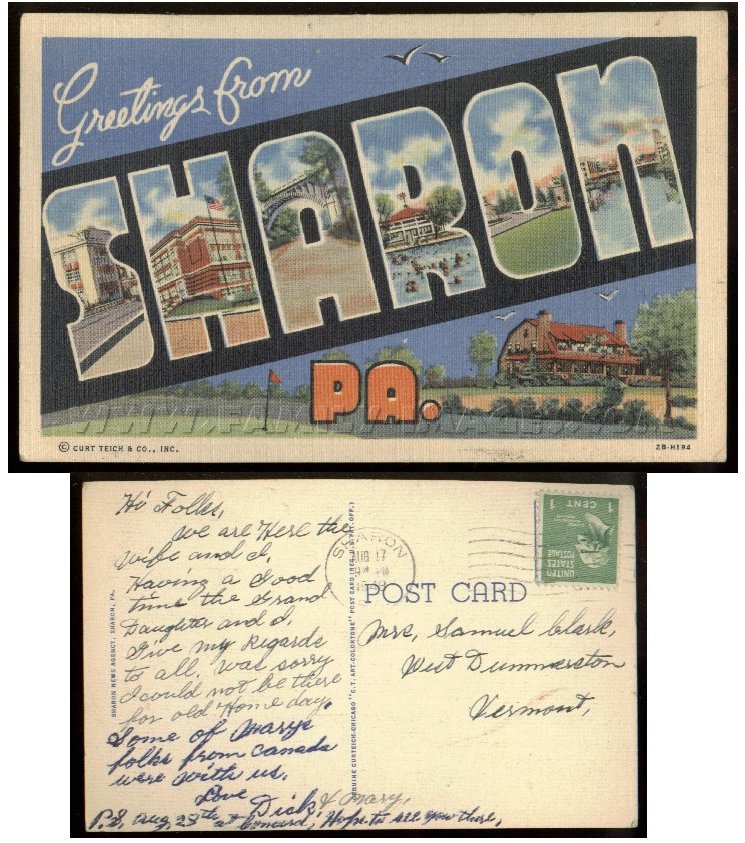 Greetings from
SHARON
PA.
WWW.FAMILYIMAGES.COM
© CURT TEICH & CO., INC.
2B-H194
Hi Folks,
We are Here the
Wife and I.
Having a Good
time the Grand
Daughter and I.
Give my Regards
to all. Was sorry
I could not be there
for old Home day.
Some of Marys
folks from Canada
were with us.
Love Dick & Mary,
P.S. Aug, 28th at Hope to see you there,
SHARON NEWS AGENCY, SHARON, PA.
GENUINE CURTEICH-CHICAGO "C.T. ART-COLORTONE" POST CARD (REG. U.S. PAT. OFF.)
SHARON
AUG 17
PM
UNITED
STATES
POSTAGE
1 CENT 1
POST CARD
Mrs, Samuel Clark,
West Dummerston
Vermont,